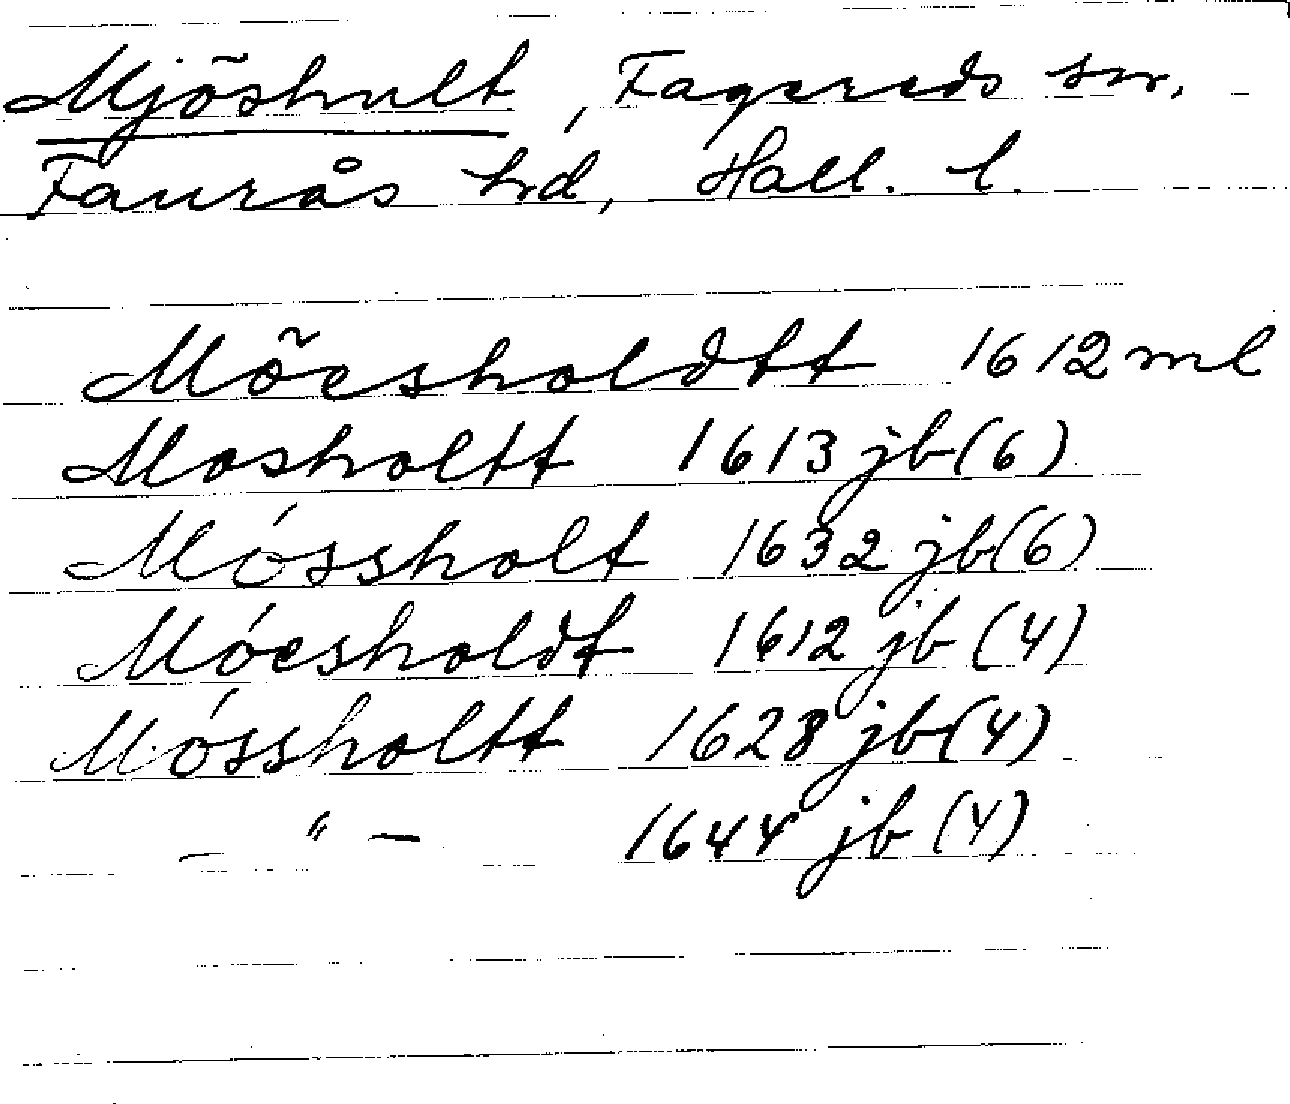 Mjöshult, Fagereds sn.
Faurås hrd, Hall. l.
Möesholdtt 1612 ml
Mosholtt 1613 jb (6)
Móssholt 1632 jb (6)
Móesholdt 1612 jb (4)
Móssholtt 1628 jb (4)
— " — 1644 jb (4)